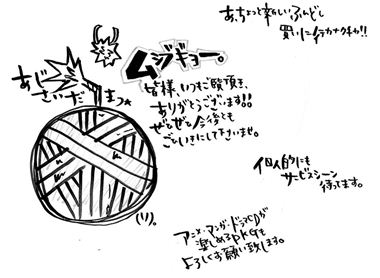 あ、ちょっと新しいふんどし
買いに行カナクチャ!!
ムシギョー。
皆様、いつもご覧頂き、
ありがとうございます!!
ぜひぜひ今後とも
ごひいきにして下さいませ。
あじさいだまつ★
(り)。
個人的にも
サービスシーン
待ってます。
アニメ・マンガ・ドラマCDが
楽しめるPKGも
よろしくお願い致します。